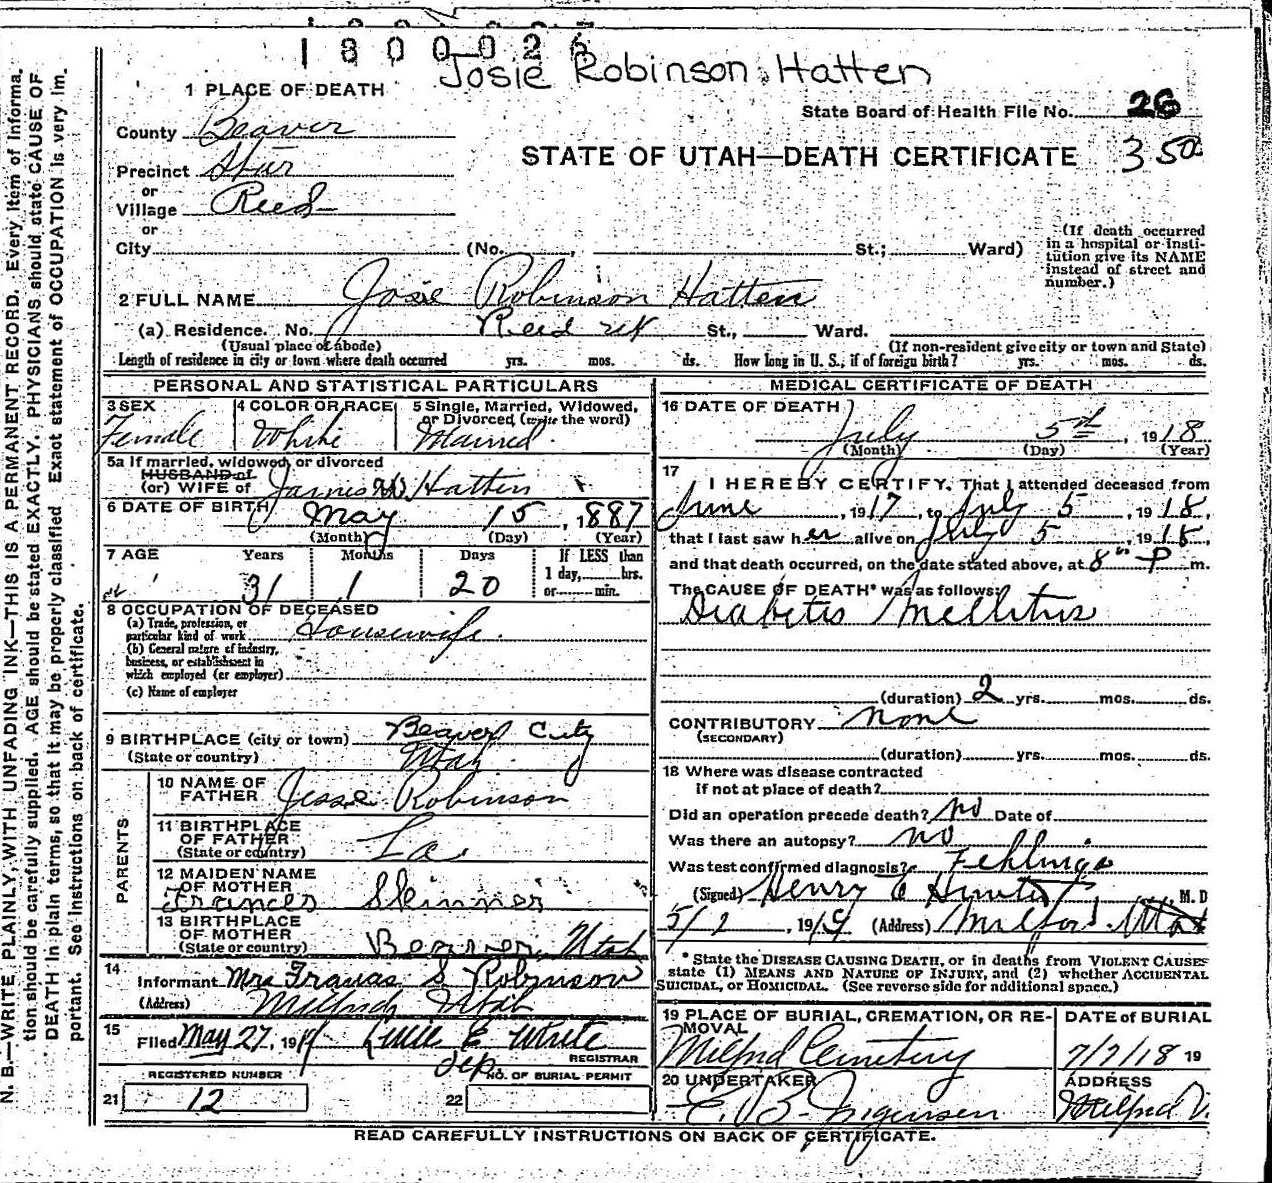 1800026
Josie Robinson Hatten
1 PLACE OF DEATH
State Board of Health File No. 26
County Beaver
STATE OF UTAH—DEATH CERTIFICATE 3 50
Precinct Star
or
Village Reed
or
City (No. , St.; Ward)
(If death occurred in a hospital or insti-
tution give its NAME
instead of street and
number.)
2 FULL NAME Josie Robinson Hatten
(a) Residence. No. Reed Ut St., Ward.
(Usual place of abode) (If non-resident give city or town and State)
Length of residence in city or town where death occurred yrs. mos. ds. How long in U. S., if of foreign birth? yrs. mos. ds.
PERSONAL AND STATISTICAL PARTICULARS
3 SEX 4 COLOR OR RACE 5 Single, Married, Widowed,
or Divorced (write the word)
Female White Married
5a If married, widowed, or divorced
HUSBAND of
(or) WIFE of James W. Hatten
6 DATE OF BIRTH May 15, 1887
(Month) (Day) (Year)
7 AGE Years Months Days If LESS than
1 day, hrs.
or min.
31 1 20
8 OCCUPATION OF DECEASED
(a) Trade, profession, or
particular kind of work Housewife
(b) General nature of industry,
business, or establishment in
which employed (or employer)
(c) Name of employer
9 BIRTHPLACE (city or town) Beaver City
(State or country) Utah
PARENTS
10 NAME OF
FATHER Jesse Robinson
11 BIRTHPLACE
OF FATHER
(State or country) La
12 MAIDEN NAME
OF MOTHER
Frances Skinner
13 BIRTHPLACE
OF MOTHER
(State or country) Beaver, Utah
14
Informant Mrs Frances S Robinson
(Address) Milford Utah
15
Filed May 27, 1919 White
Dep REGISTRAR
REGISTERED NUMBER NO. OF BURIAL PERMIT
21 12 22
MEDICAL CERTIFICATE OF DEATH
16 DATE OF DEATH
July 5th, 1918
(Month) (Day) (Year)
17
I HEREBY CERTIFY, That I attended deceased from
June , 1917, to July 5, 1918,
that I last saw her alive on July 5, 1918,
and that death occurred, on the date stated above, at 8 P m.
The CAUSE OF DEATH* was as follows:
Diabetis Mellitus
(duration) 2 yrs. mos. ds.
CONTRIBUTORY none
(SECONDARY)
(duration) yrs. mos. ds.
18 Where was disease contracted
if not at place of death?
Did an operation precede death? no Date of
Was there an autopsy? no
Was test confirmed diagnosis? Fehlings
(Signed) Henry E Hunter, M. D
5/2, 1919 (Address) Milford Utah
* State the DISEASE CAUSING DEATH, or in deaths from VIOLENT CAUSES
state (1) MEANS AND NATURE OF INJURY, and (2) whether ACCIDENTAL
SUICIDAL, or HOMICIDAL. (See reverse side for additional space.)
19 PLACE OF BURIAL, CREMATION, OR RE-
MOVAL
DATE of BURIAL
Milford Cemetery 7/7/18 19
20 UNDERTAKER ADDRESS
E. B. Jorgensen Milford U.
READ CAREFULLY INSTRUCTIONS ON BACK OF CERTIFICATE.
N. B.—WRITE PLAINLY, WITH UNFADING INK—THIS IS A PERMANENT RECORD. Every item of informa-
tion should be carefully supplied. AGE should be stated EXACTLY. PHYSICIANS should state CAUSE OF
DEATH in plain terms, so that it may be properly classified. Exact statement of OCCUPATION is very im-
portant. See instructions on back of certificate.